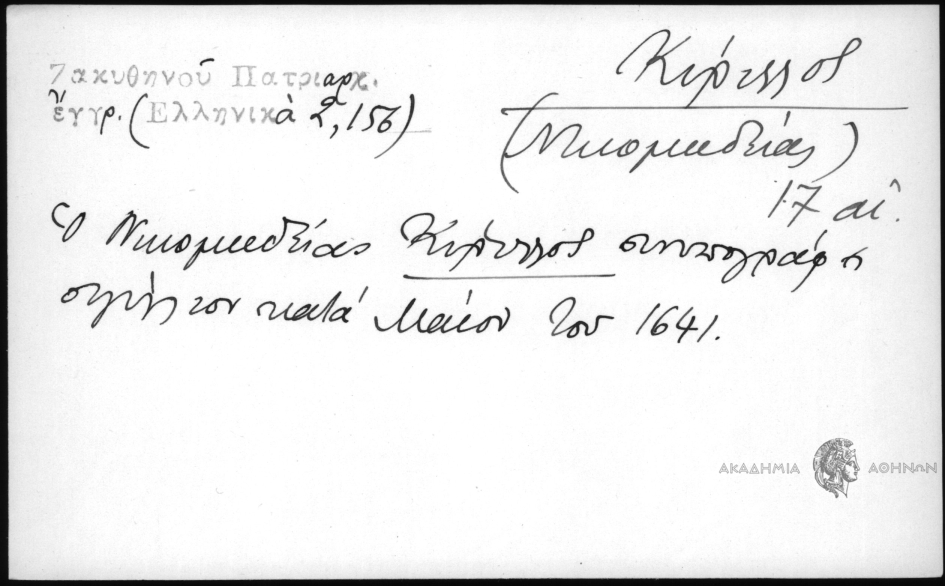 Ζακυθηνοῦ Πατριαρχ.
ἔγγρ. (Ἑλληνικὰ 2, 156)
Κύριλλος
(Νικομηδείας)
17 αἰ.
Ὁ Νικομηδείας Κύριλλος συνυπογράφει
σιγίλλιον κατά Μάϊον του 1641.
ΑΚΑΔΗΜΙΑ ΑΘΗΝΩΝ